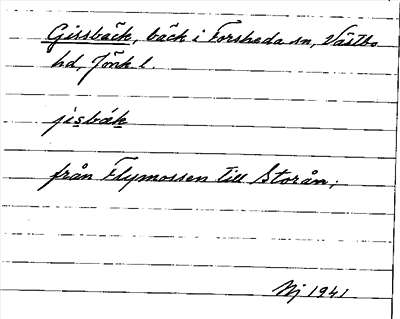 Gissbäck, bäck i Forsheda sn, Västbo
hd, Jönk l.
jisbäk
från Flymossen till Storån;
Nj 1941